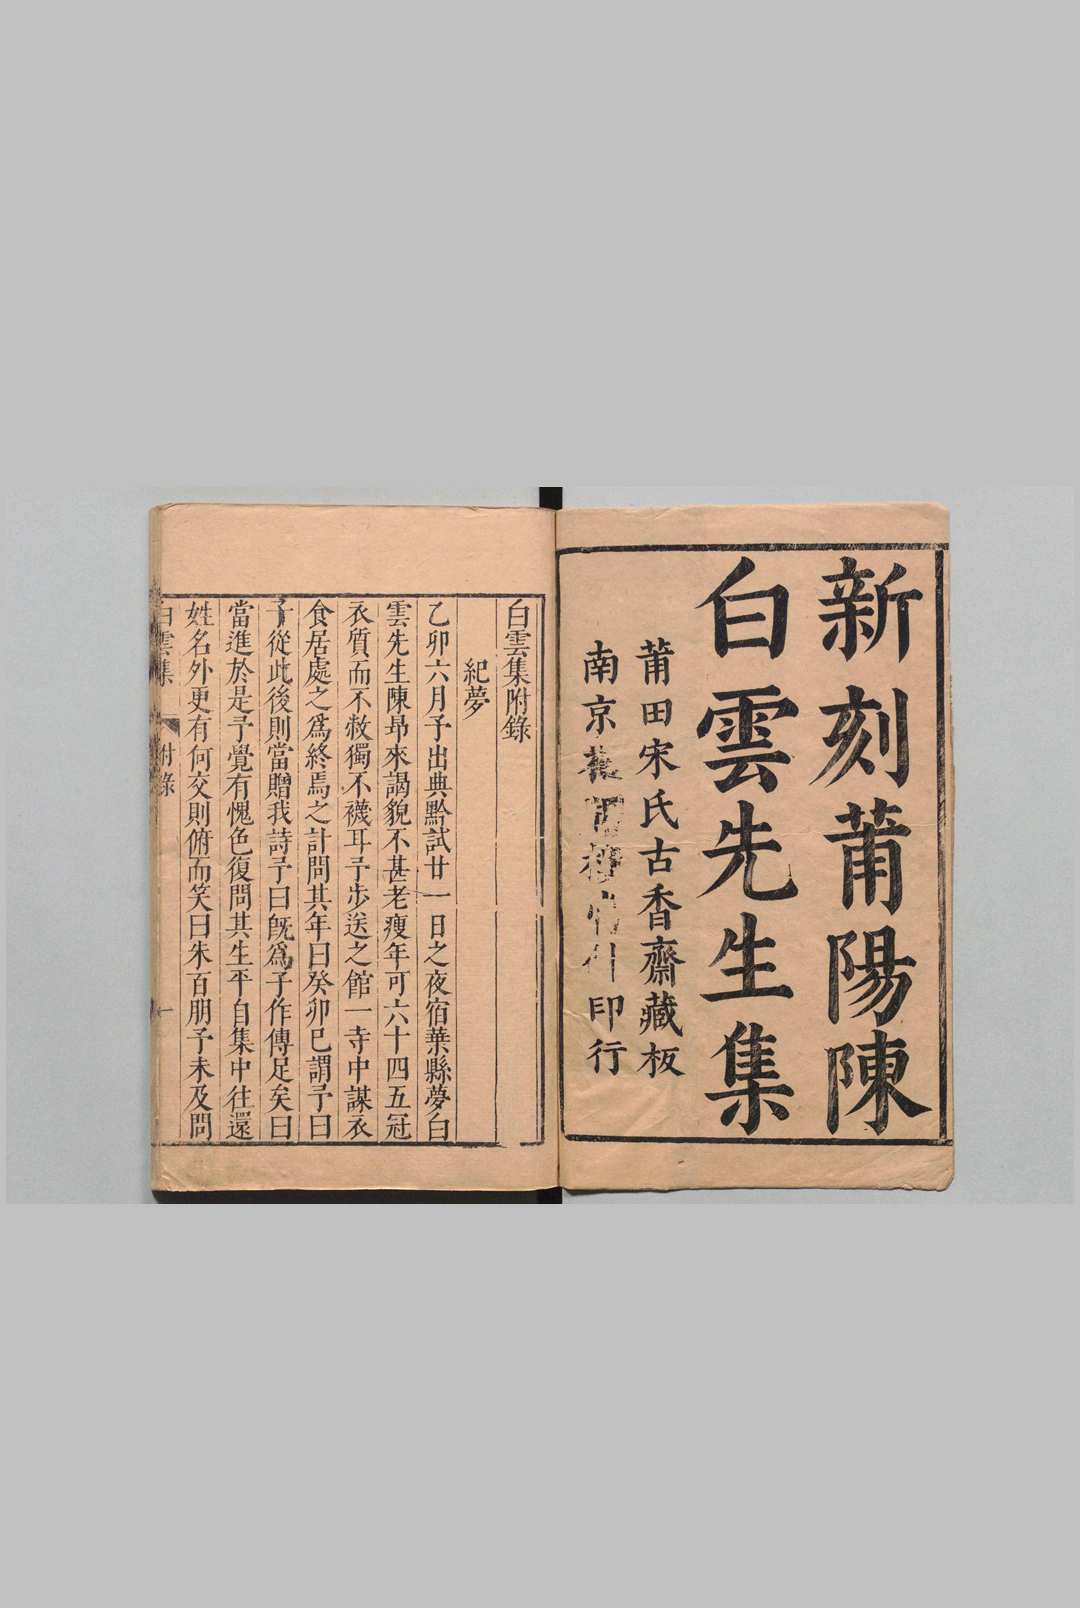 新刻莆陽陳
白雲先生集
莆田宋氏古香齋藏板
南京 印行
白雲集附錄
紀夢
乙卯六月予出典黔試廿一日之夜宿葉縣夢白
雲先生陳昂來謁貌不甚老瘦年可六十四五冠
衣質而不敝獨不襪耳予步送之館一寺中謀衣
食居處之爲終焉之計問其年曰癸卯巳謂予曰
子從此後則當贈我詩予曰旣爲子作傳足矣曰
當進於是予覺有愧色復問其生平自集中往還
姓名外更有何交則俯而笑曰朱百朋予未及問
白雲集 附錄 一